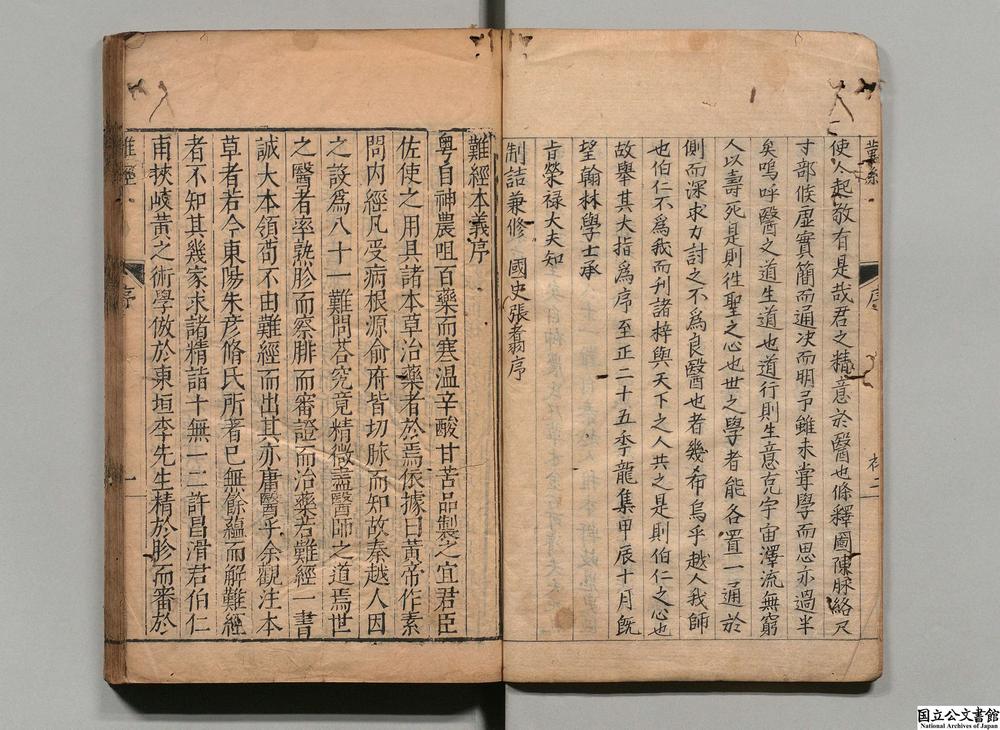 難經
序
序二
使人起敬有是哉君之精意於醫也條釋圖陳脉絡尺
寸部候虛實簡而通决而明予雖未嘗學而思亦過半
矣嗚呼醫之道生道也道行則生意充宇宙澤流無窮
人以壽死是則徃聖之心也世之學者能各置一通於
側而深求力討之不為良醫也者幾希烏乎越人我師
也伯仁不為我而刋諸梓與天下之人共之是則伯仁之心也
故舉其大指為序至正二十五季龍集甲辰十月旣
望翰林學士承
旨榮禄大夫知
制誥兼修 國史張翥序
難經本義序
粤自神農咀百藥而寒温辛酸甘苦品製之宜君臣
佐使之用具諸本草治藥者於焉依據曰黃帝作素
問内經凡受病根源俞府皆切脉而知故奉越人因
之設為八十一難問荅究竟精微盖醫師之道焉世
之醫者率熟胗而察腓而審證而治藥若難經一書
誠大本領苟不由難經而出其亦庸醫乎余觀注本
草者若今東陽朱彦脩氏所著已無餘藴而解難經
者不知其幾家求諸精詣十無一二許昌滑君伯仁
甫挾岐黃之術學倣於東垣李先生精於胗而審於
難經
序
一
国立公文書館
National Archives of Japan